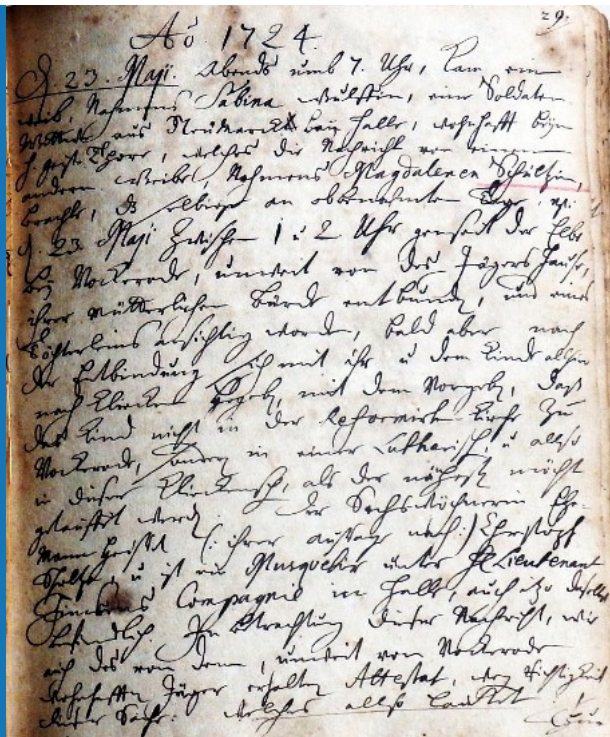 29.
Aō. 1724.
d. 23. Maji. Abends umb 7. Uhr, kam ein
Weib, Nahmens Sabina Wulstin, eine Soldaten
aus Neumarckt bey Halle, wohnhafft beym
Thore, welches die Nachricht von einem
andern Weibe, Nahmens Magdalenen Schultzin,
brachte, selbige an obbenahmten Tage,
d. 23. Maji zwischen 1 u 2 Uhr jenseit der Elbe
bey Vockerode, unweit von des Jägers Hause,
ihrer mütterlichen Bürde entbunden, und eines
Töchterleins ansichtig worden, bald aber nach
der Entbindung sich mit ihr u dem Kinde allhier
nach Kliecken begeben, mit dem Vorgeben, daß
das Kind nicht in der Reformirten Kirche zu
Vockerode, sondern in einer Lutherisch. u also
in dieser, als der nähest möcht
getaufft werd. Der Sechswöchnerin Ehe-
Mann heisst (: ihrer aussage nach:) Christoph
Schultze, u ist ein Musquetir unter H. Lieutenant
Compagnie in Halle, auch itzo daselbst
befindlich. In Betrachtung dieser Nachricht, wie
auch des von dem, unweit von Vockerode
wohnhafften Jäger erhalten Attestat, weg Richtigkeit
dieser Sache: welches also lautet: